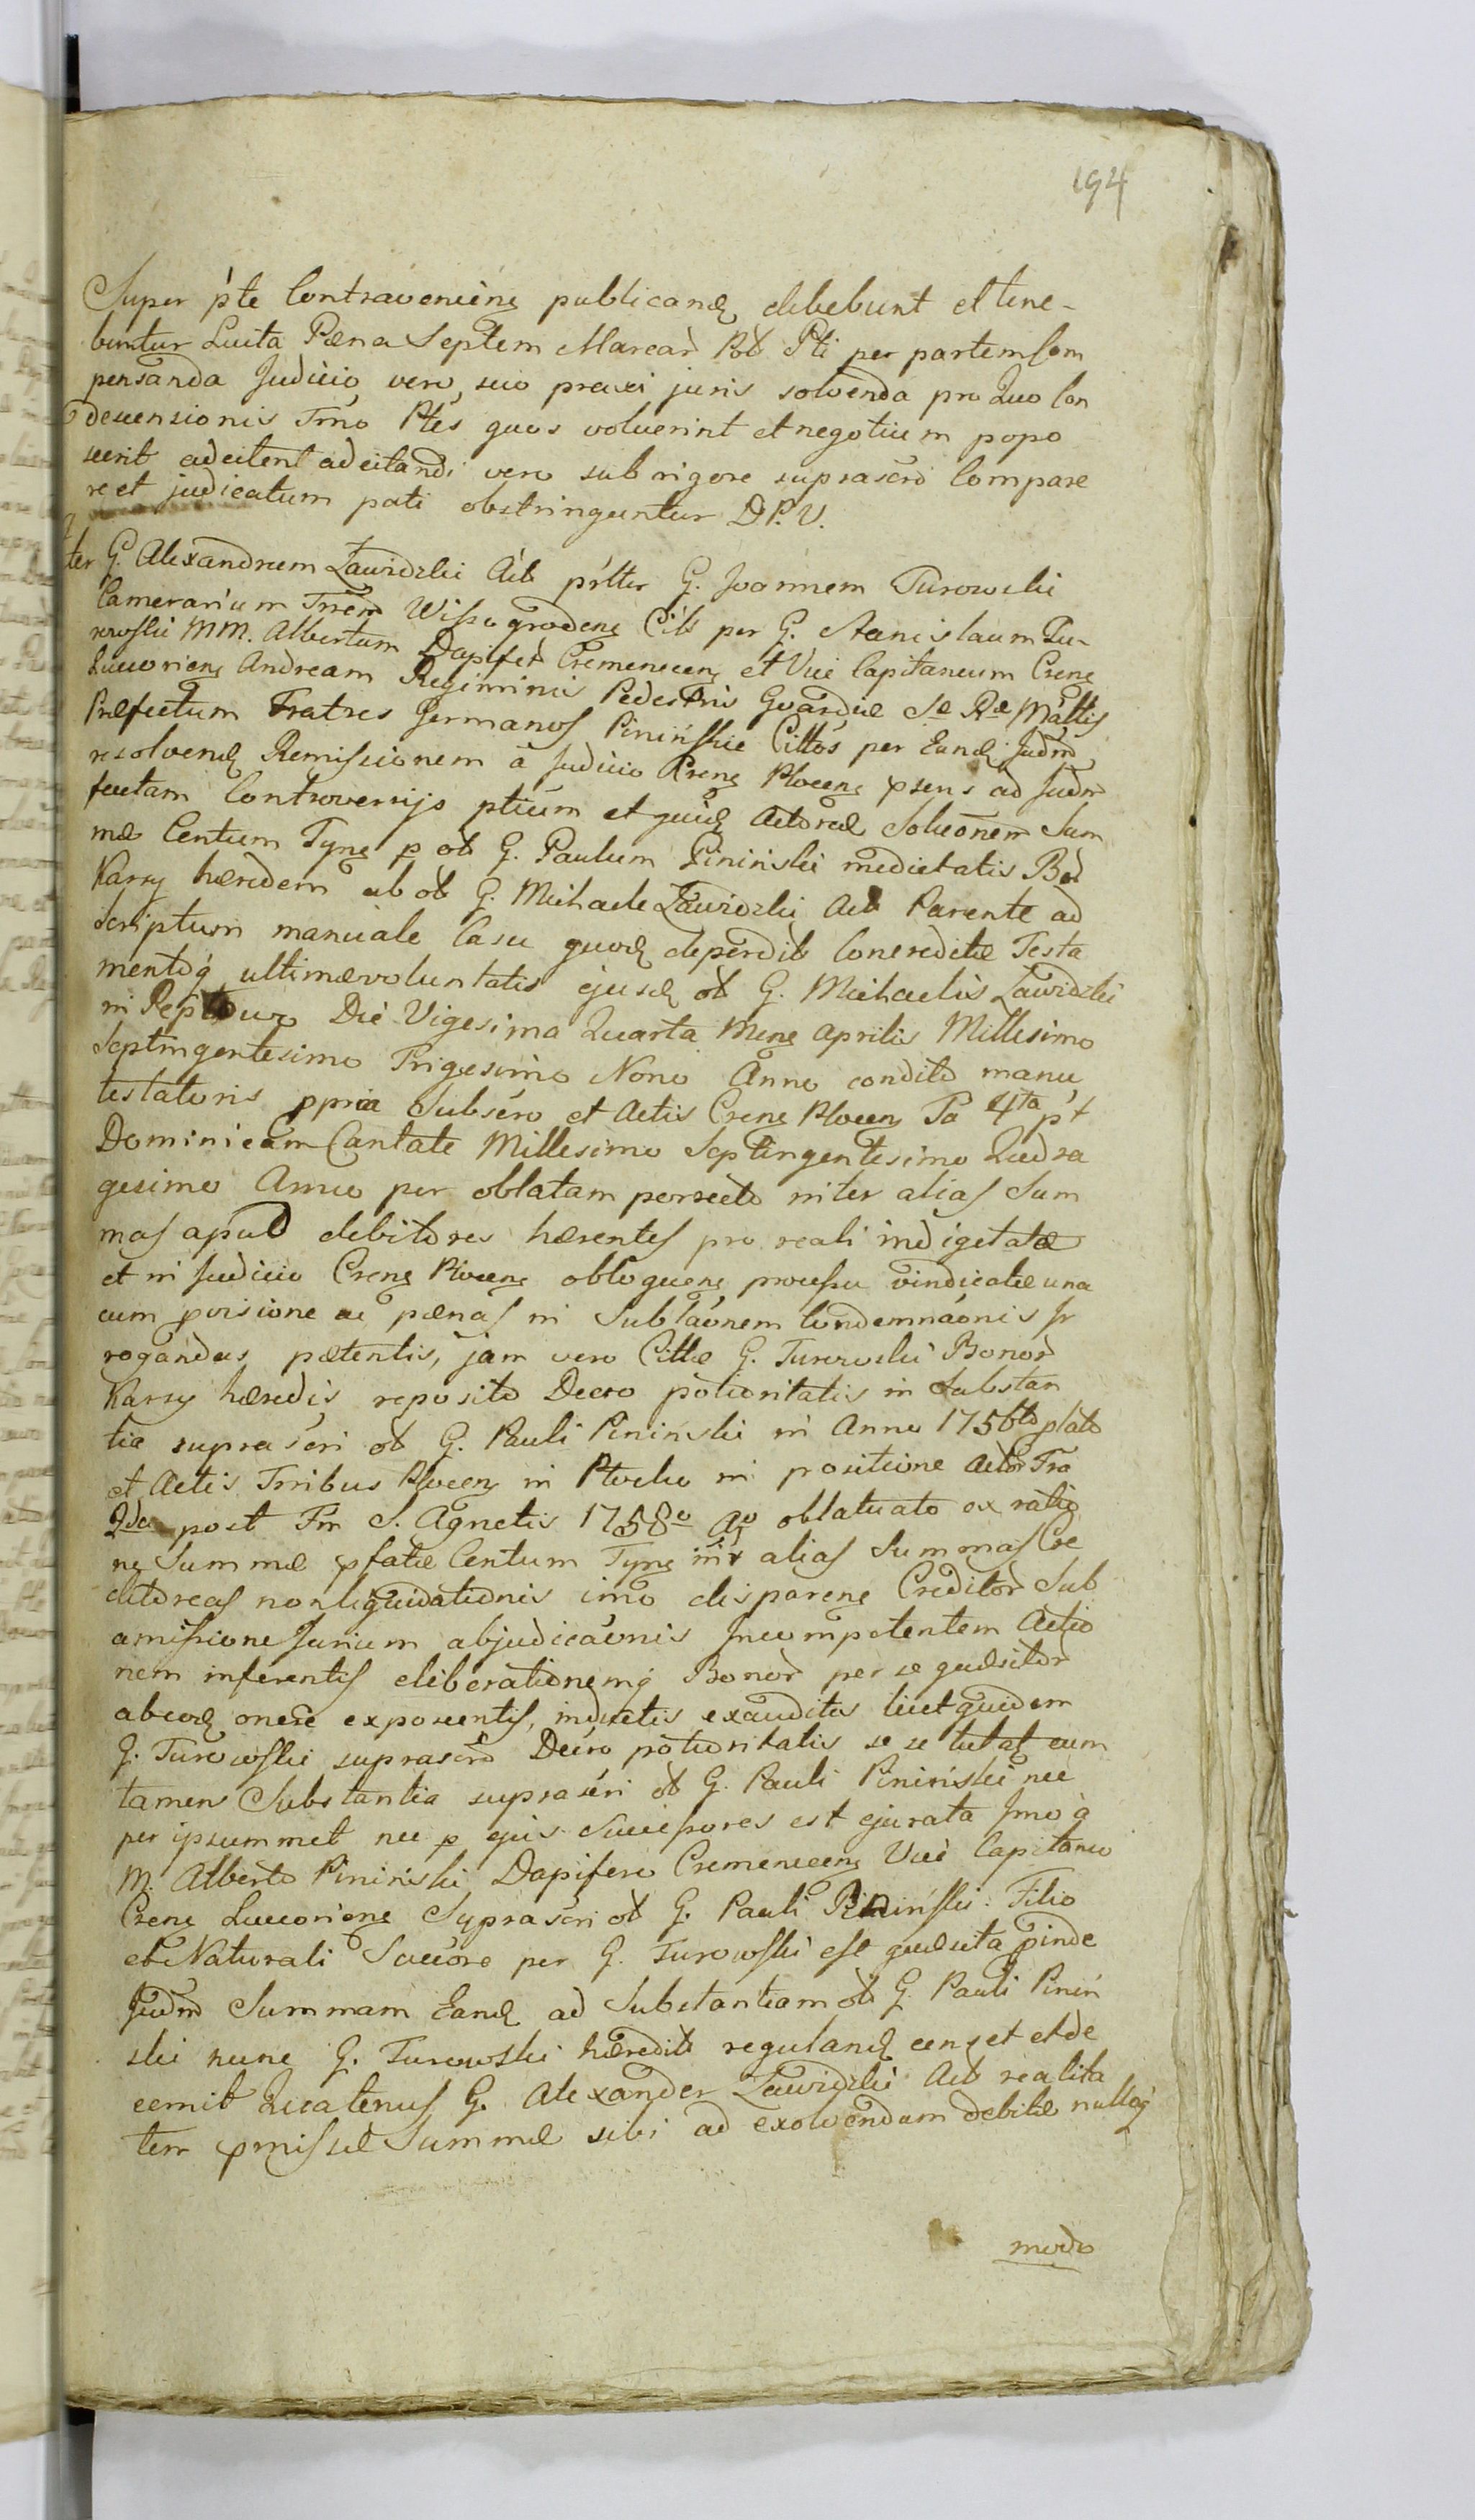 194
Super pte Contravenieng publicand debebunt et tene-
buntur Luita Pæna Septem Marcar Pol Pti per partem Com
pensanda Judicio vero, suo praxi juris solvenda pro Quo Con
descensionis Trno Ptes quos voluerint et negotium popo
scerit adcitent adcitandi vero sub rigore suprascro Compare
re et judicatum pati obstringuntur D.P.V.
ter G. Alexandrum Zawidzki Act pñter G. Joannem Turowski
Camerarium Trrem Wissogrodens Citt per G. Stanislaum Tu-
rowski MM. Albertum Dapifer Cremenecens et Vice Capitaneum Crens
Luceoriens Andream Regiminis Pedestris Guardiæ Sæ Ræ Mattis
Præfectum Fratres Germanos Pininskie Cittos per Eund Judm
resolvend Remissionem a Judicio Crens Plocens prsens ad Judm
factam Controversijs ptium et quid Actoreæ Solutionem Sum
mæ Centum Tyng p ob G. Paulum Pininski medietatis Bor
Karsy hæredem ab ob G. Michaele Zawidzki Act Parente ad
Scriptum manuale Casu quod deperdit Concreditæ Testa
mentoq ultimævoluntatis ejusd ob G. Michaelis Zawidzki
in Die Vigesima Quarta Mens Aprilis Millesimo
Septingentesimo Trigesimo Nono Anno condito manu
testatoris ppria Subscro et Actis Crens Plocens Ta 4ta pt
Dominicam Cantate Millesimo Septingentesimo Quadra
gesimo Anno per oblatam porrecto inter alias Sum
mas apud debitores hærentes pro reali indigetatæ
et in Judicio Crens Plocens obloquens processu vindicatæ una
cum proisione ac pænas in Sublaonem Condemnaonis Ir
rogandas pætentis, jam vero Cittæ G. Turowski Bonor
Karsy hæredis reposito Decro potioritatis in Substan
tia suprascri ob G. Pauli Pininski in Anno 1756to plato
et Actis Trribus Plocens in Plocko in positione Actor Fra
2da post Fm S. Agnetis 1758o Ao oblatuato ex ratio
ne Summæ pfatæ Centum Tyng intr alias Summas Cre
ditoreas nonliquidationis imo disparens Creditor Sub
amissione Jurium abjudicaonis Incompetentem Actio
nem inferentis eliberationemq Bonor per se quæsitor
abeod onere exposcentis, inductis exauditis licet quidem
G. Turowski suprascro Decro potioritatis se se tutat cum
tamen Substantia suprascri ob G. Pauli Pininski nec
per ipsummet nec p ejus Sucessores est ejurata Imo à
M. Alberto Pininski Dapifero Cremenecens Vice Capitaneo
Crens Luceoriens Suprascri ob G. Pauli Pininski: Filio
et Naturali Succore per G. Turowski est quæsita pinde
Judm Summam Eand ad Substantiam ob G. Pauli Pinin
ski nunc G. Turowski hæredit reguland censet et de
cernit Quatenus G. Alexander Zawidzki Act realita
tem pmissæ Summæ sibi ad exolvendam debitæ nullaq
modo